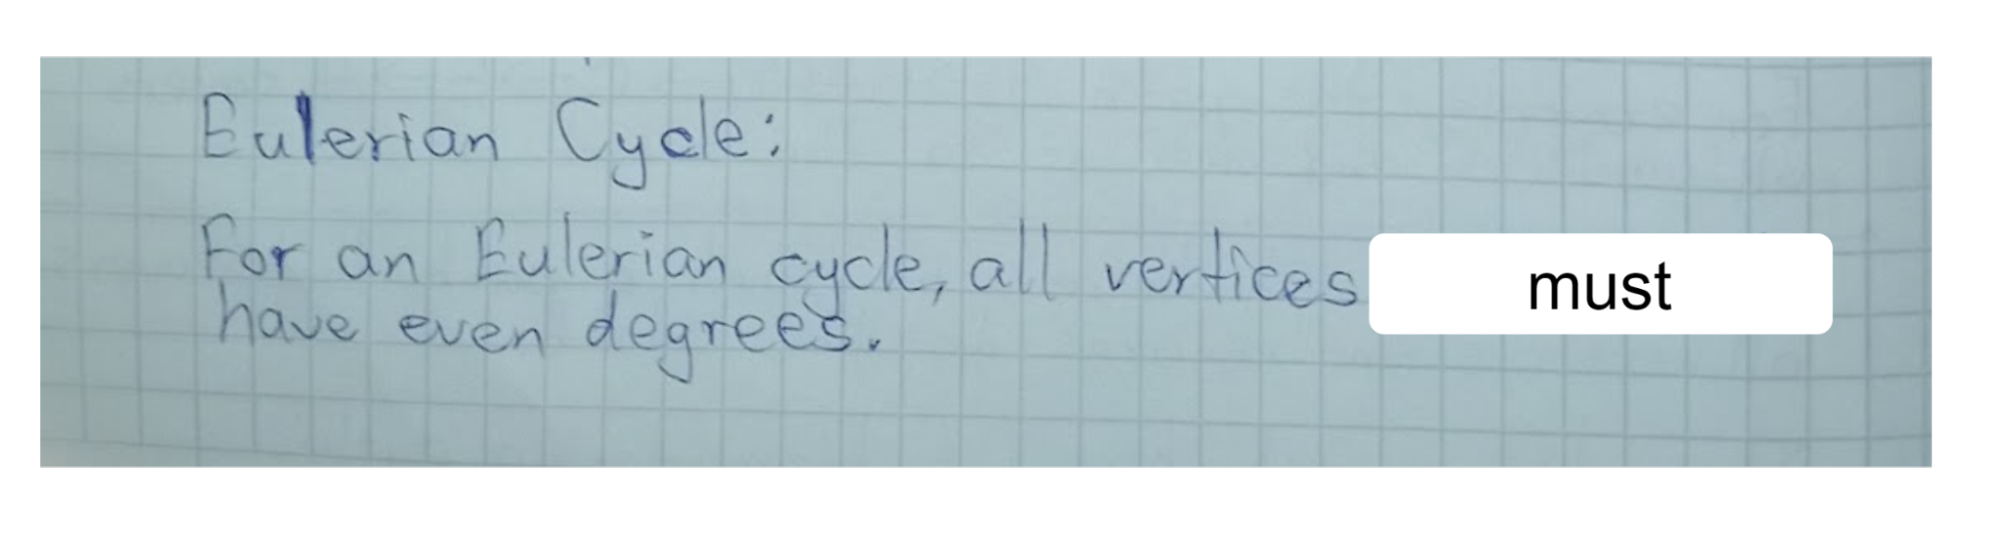 Eulerian Cycle:
For an Eulerian cycle, all vertices must
have even degrees.